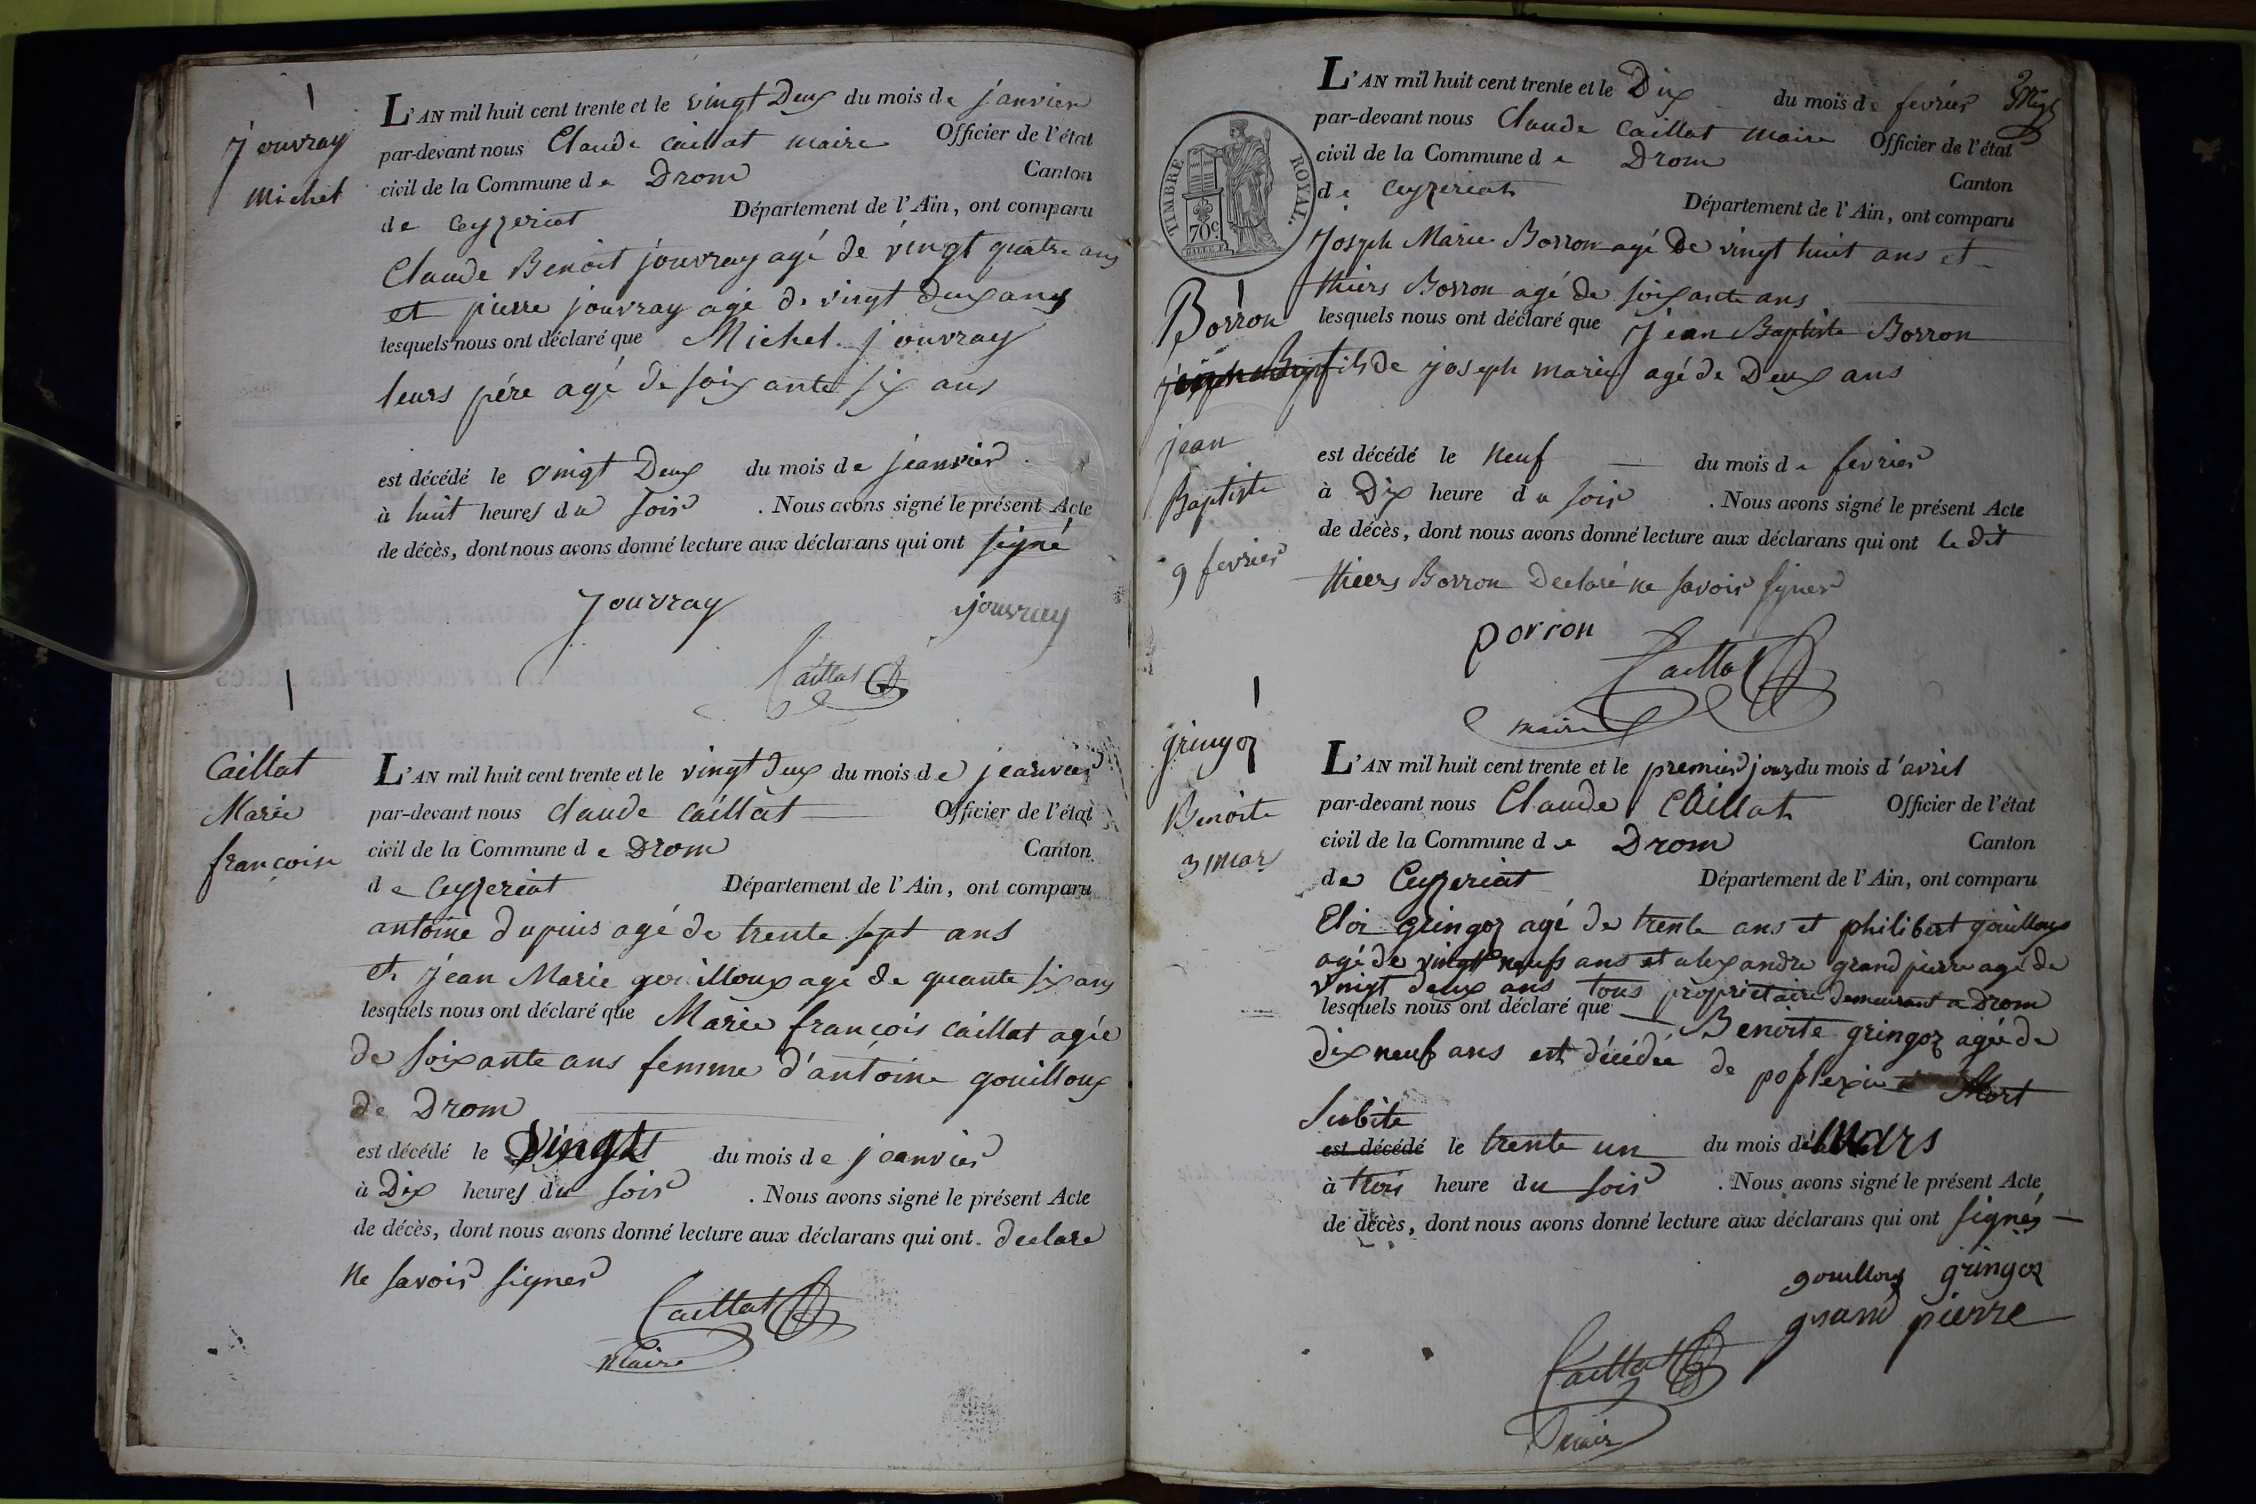 jouvray
Michel
L'AN mil huit cent trente et le vingt Deux du mois de janvier
par-devant nous Claude Caillat maire Officier de l'état
civil de la Commune de Drom Canton
de Ceyzeriat Département de l'Ain, ont comparu
Claude Benoit jouvray agé de vingt quatre ans
et pierre jouvray agé de vingt deux ans
lesquels nous ont déclaré que Michel jouvray
leurs pére agé de soixante six ans
est décédé le vingt Deux du mois de jeanvier
à huit heures du soir . Nous avons signé le présent Acte
de décès, dont nous avons donné lecture aux déclarans qui ont signé
jouvray jouvray
Caillat
Caillat
Marie
françoise
L'AN mil huit cent trente et le vingt deux du mois de jeanvier
par-devant nous claude Caillat Officier de l'état
civil de la Commune de Drom Canton
de Ceyzeriat Département de l'Ain, ont comparu
antoine dupuis agé de trente sept ans
et jean Marie gouilloux agé de quante six ans
lesquels nous ont déclaré que Marie françois Caillat agée
de soixante ans femme d'antoine gouilloux
de Drom
est décédé le vingt du mois de jeanvier
à Dix heures du soir . Nous avons signé le présent Acte
de décès, dont nous avons donné lecture aux déclarans qui ont declare
ne savoir signer
Caillat
Maire
TIMBRE ROYAL.
70c
L'AN mil huit cent trente et le Dix du mois de fevrier
par-devant nous Claude Caillat maire Officier de l'état
civil de la Commune de Drom Canton
de Ceyzeriat Département de l'Ain, ont comparu
Joseph Marie Borron agé De vingt huit ans et
thiers Borron agé de soixante ans
lesquels nous ont déclaré que jean Baptiste Borron
fils de joseph marie agé de Deux ans
Borron
jean
Baptiste
9 fevrier
est décédé le neuf du mois de fevrier
à Dix heure du soir . Nous avons signé le présent Acte
de décès, dont nous avons donné lecture aux déclarans qui ont le dit
thiers Borron Declaré ne savoir signer
porron
Caillat
maire
gringoz
Benoite
3 mar
L'AN mil huit cent trente et le premier jour du mois d'avril
par-devant nous Claude Caillat Officier de l'état
civil de la Commune de Drom Canton
de Ceyzeriat Département de l'Ain, ont comparu
Eloi gringoz agé de trente ans et philibert gouilloux
agé de vingt neufs ans et alexandre grandpierre agé de
vingt deux ans tous proprietaire demeurant a Drom
lesquels nous ont déclaré que Benoite gringoz agée de
dix neufs ans est décédée de poplexie Mort
Subite
est décédé le trente un du mois de Mars
à trois heure du soir . Nous avons signé le présent Acte
de décès, dont nous avons donné lecture aux déclarans qui ont signés
gouilloux gringoz
grand pierre
Caillat
maire